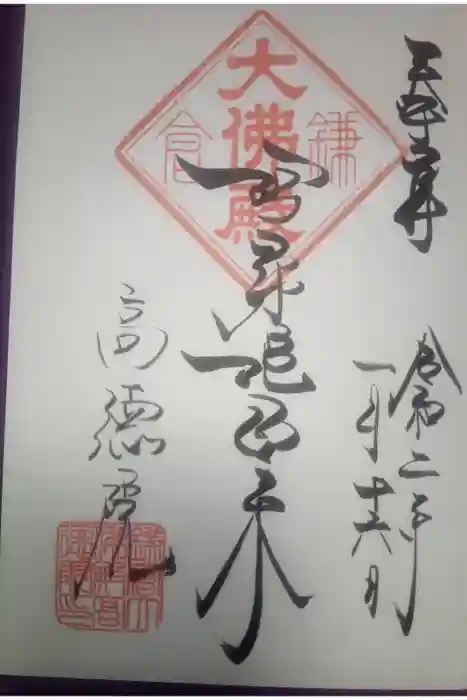 令和二年
一月十六日
鎌倉
大佛殿
阿弥陀如来
高德院